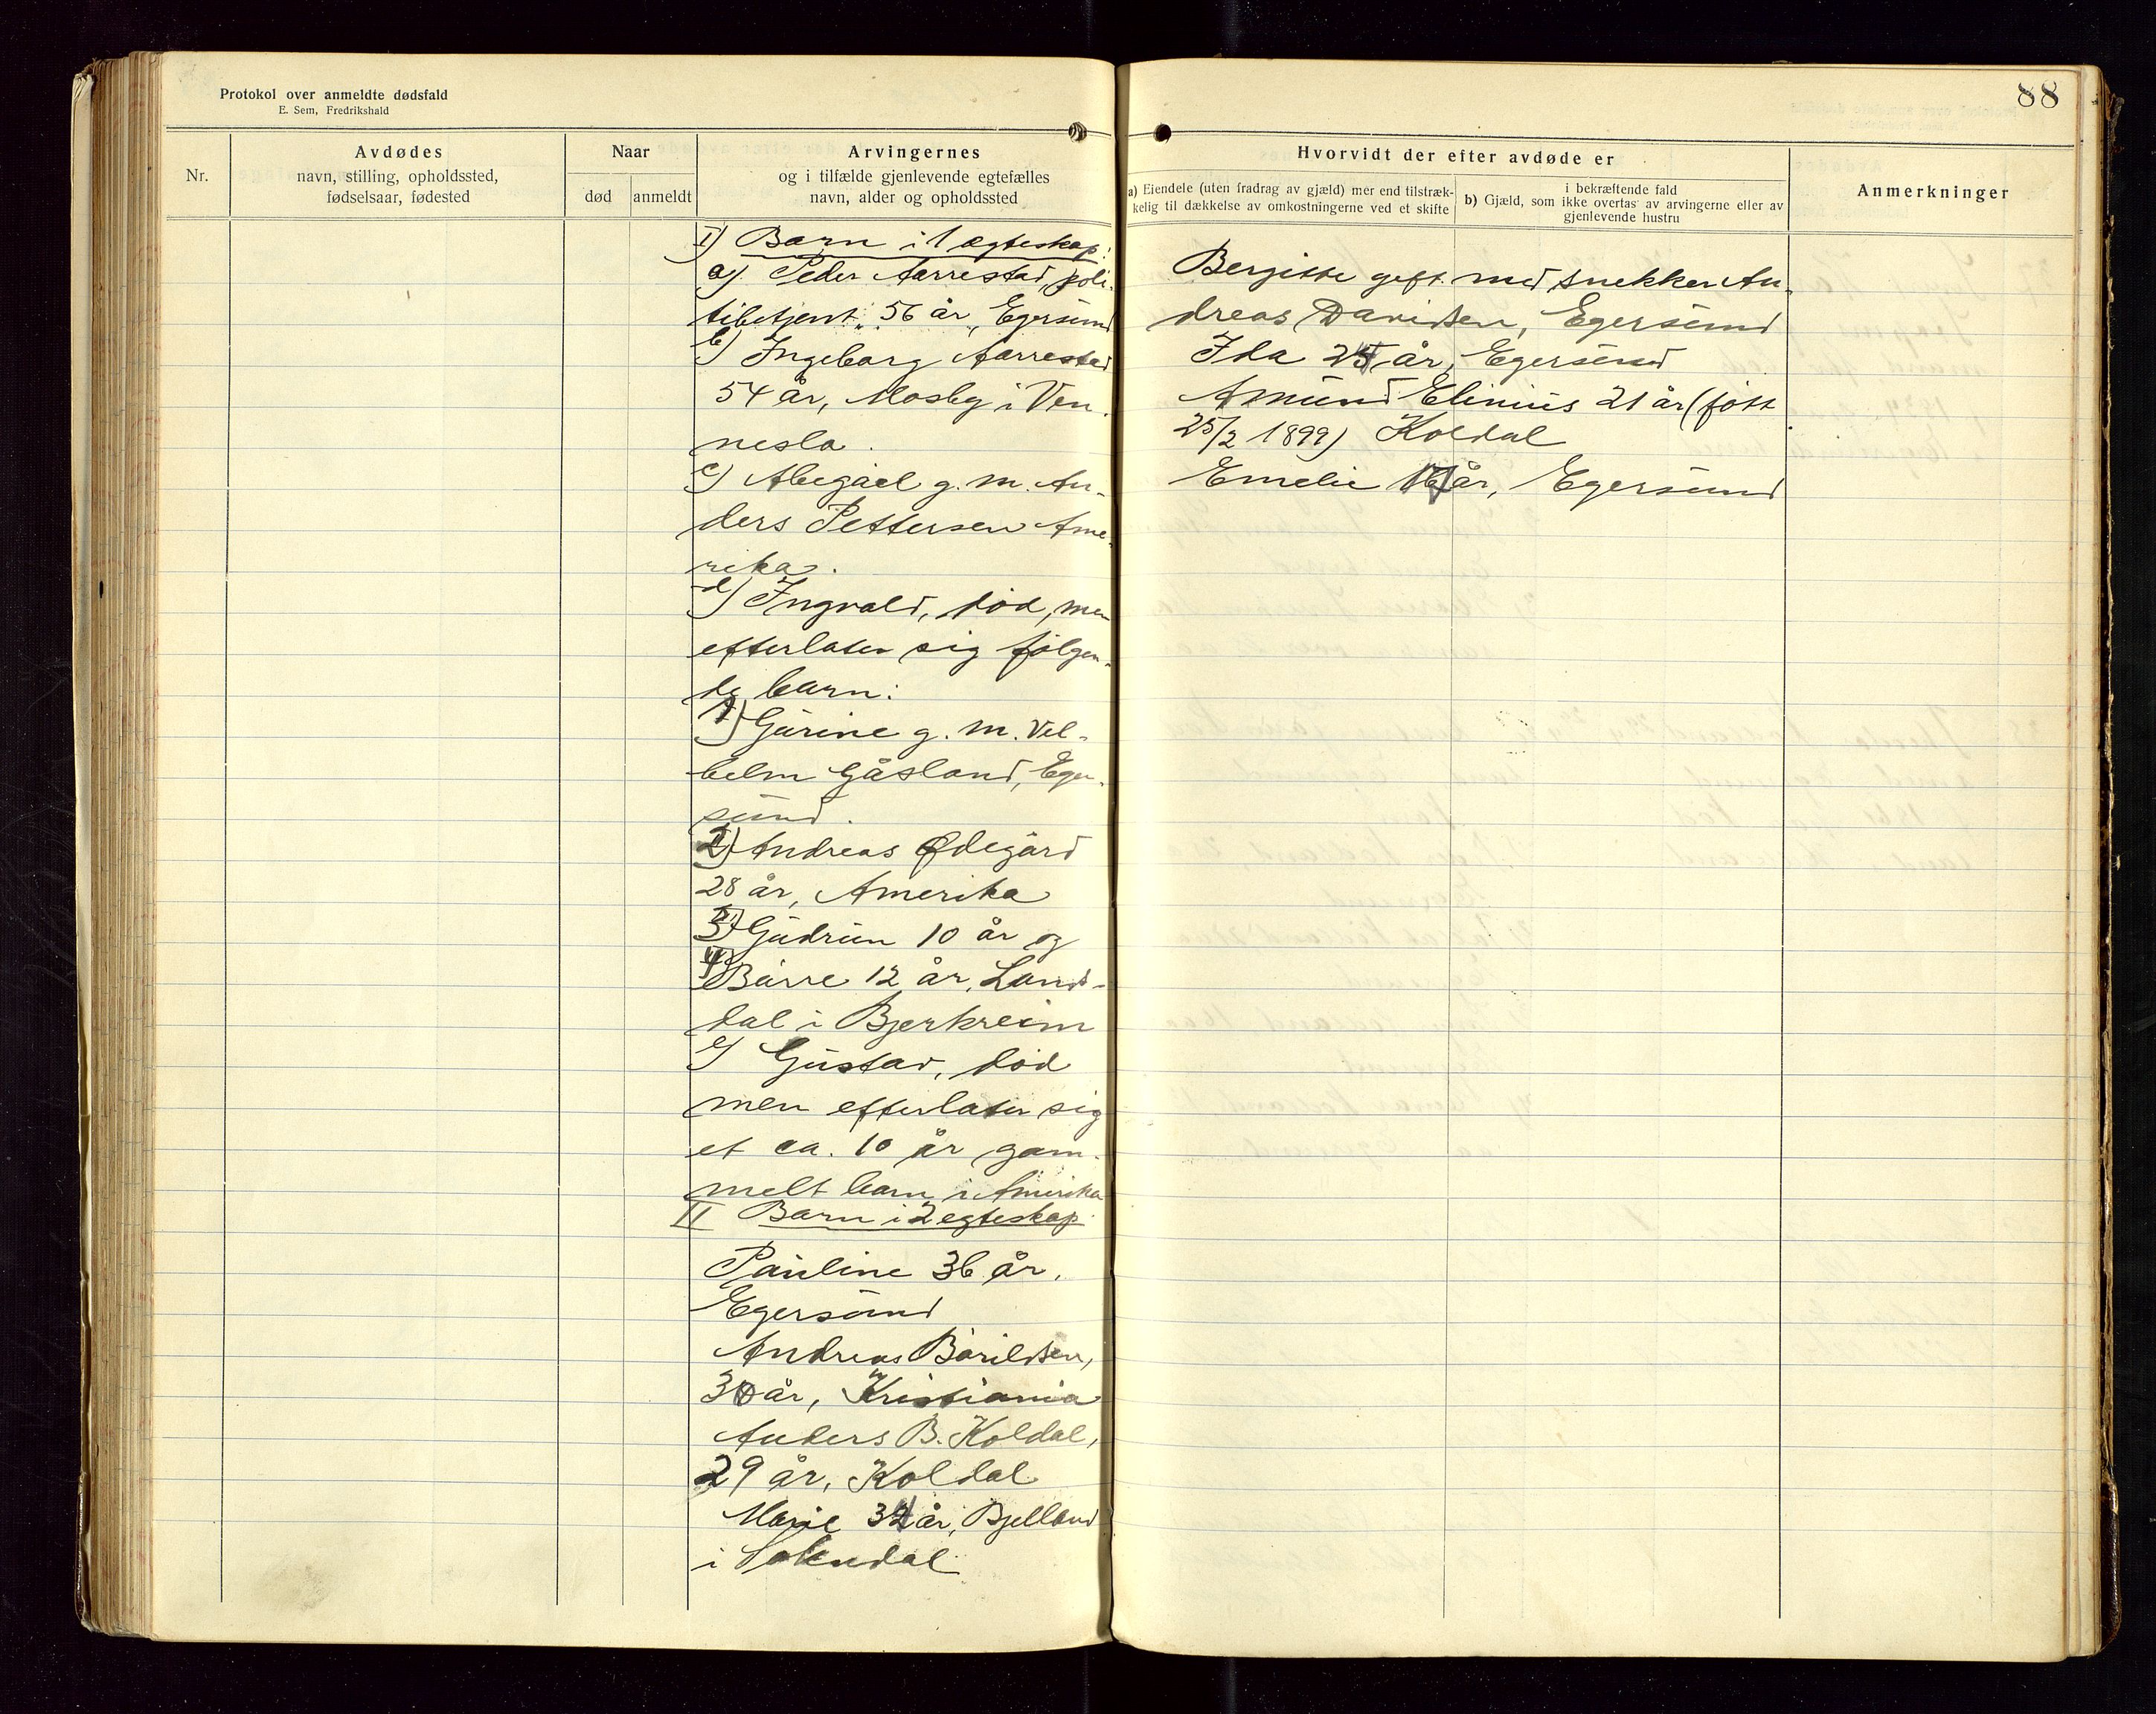 Protokol over anmeldte dødsfald
E. Sem, Fredrikshald
Nr.
Avdødes
navn, stilling, opholdssted,
fødselsaar, fødested
Naar
død
anmeldt
Arvingernes
og i tilfælde gjenlevende egtefælles
navn, alder og opholdssted
I) Barn i 1 ægteskap:
a) Peder Aarrestad, poli-
tibetjent, 56 år, Egersund
b) Ingeborg Aarrestad
54 år, Mosby i Ven-
nesla.
c) Abegael g. m. An-
ders Pettersen Ame-
rika.
d) Ingvald, død, men
efterlater sig følgen-
de barn:
1) Gurine g. m. Vil-
helm Gåsland, Eger-
sund.
2) Andreas Ødegård
28 år, Amerika
3) Gudrun 10 år og
4) Bårre 12 år, Land-
dal i Bjerkreim
e) Gustav, død
men efterlater sig
et ca. 10 år gam-
melt barn i Amerika
II Barn i 2 egteskap
Pauline 36 år,
Egersund
Andreas Bårildsen,
år, Kristiania
Anders B. Koldal,
29 år, Koldal
Marie år, Bjelland
i Sokndal
88
Hvorvidt der efter avdøde er
a) Eiendele (uten fradrag av gjæld) mer end tilstræk-
kelig til dækkelse av omkostningerne ved et skifte
i bekræftende fald
b) Gjæld, som ikke overtas av arvingerne eller av
gjenlevende hustru
Anmerkninger
Bergitte gift med snekker An-
dreas Davidsen, Egersund
Ida år, Egersund
Amund Elinius 21 år (født
25/2 1899) Koldal
Emelie år, Egersund